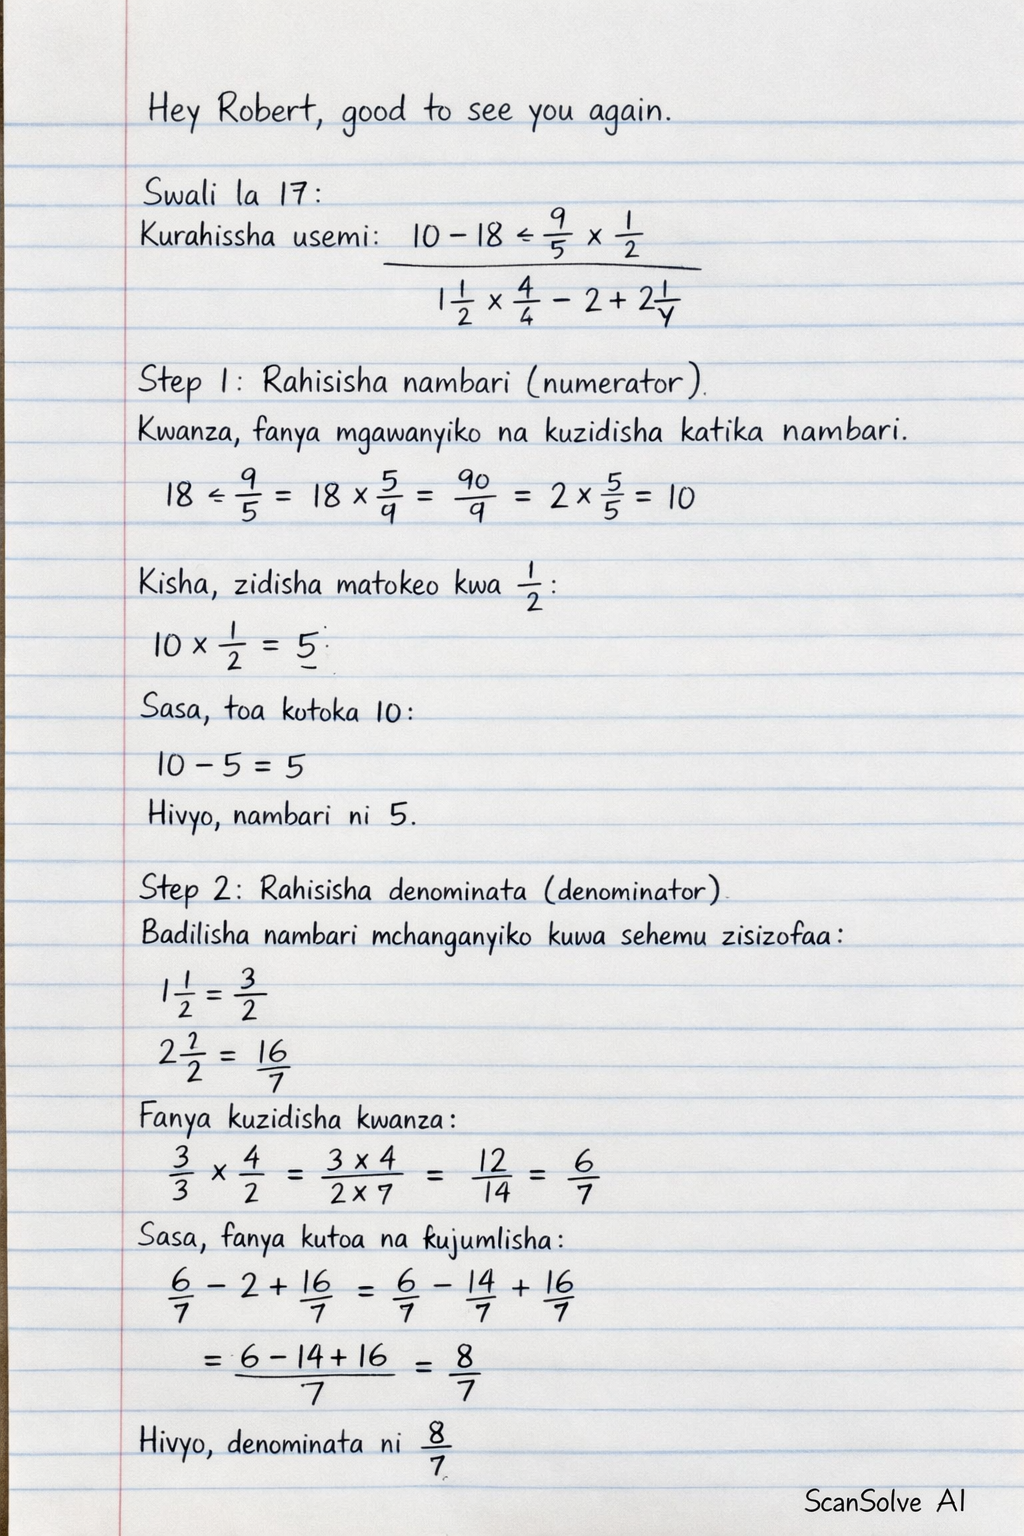 Hey Robert, good to see you again.
Swali la 17:
Kurahissha usemi: 10 − 18 ÷ 9/5 × 1/2
1 1/2 × 4/4 − 2 + 2 1/Y
Step 1: Rahisisha nambari (numerator).
Kwanza, fanya mgawanyiko na kuzidisha katika nambari.
18 ÷ 9/5 = 18 × 5/9 = 90/9 = 2 × 5/5 = 10
Kisha, zidisha matokeo kwa 1/2:
10 × 1/2 = 5
Sasa, toa kutoka 10:
10 − 5 = 5
Hivyo, nambari ni 5.
Step 2: Rahisisha denominata (denominator).
Badilisha nambari mchanganyiko kuwa sehemu zisizofaa:
1 1/2 = 3/2
2 2/2 = 16/7
Fanya kuzidisha kwanza:
3/3 × 4/2 = 3 × 4/2 × 7 = 12/14 = 6/7
Sasa, fanya kutoa na kujumlisha:
6/7 − 2 + 16/7 = 6/7 − 14/7 + 16/7
= 6 − 14 + 16/7 = 8/7
Hivyo, denominata ni 8/7
ScanSolve AI